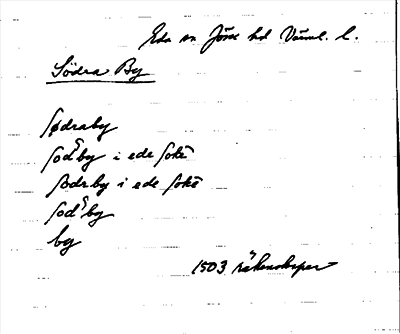 Eda sn Jösse hd Värml. l.
Södra By
sødraby
sodʳby i ede sokñ
sodrby i ede sokñ
sodʳby
by
1503 räkenskaper